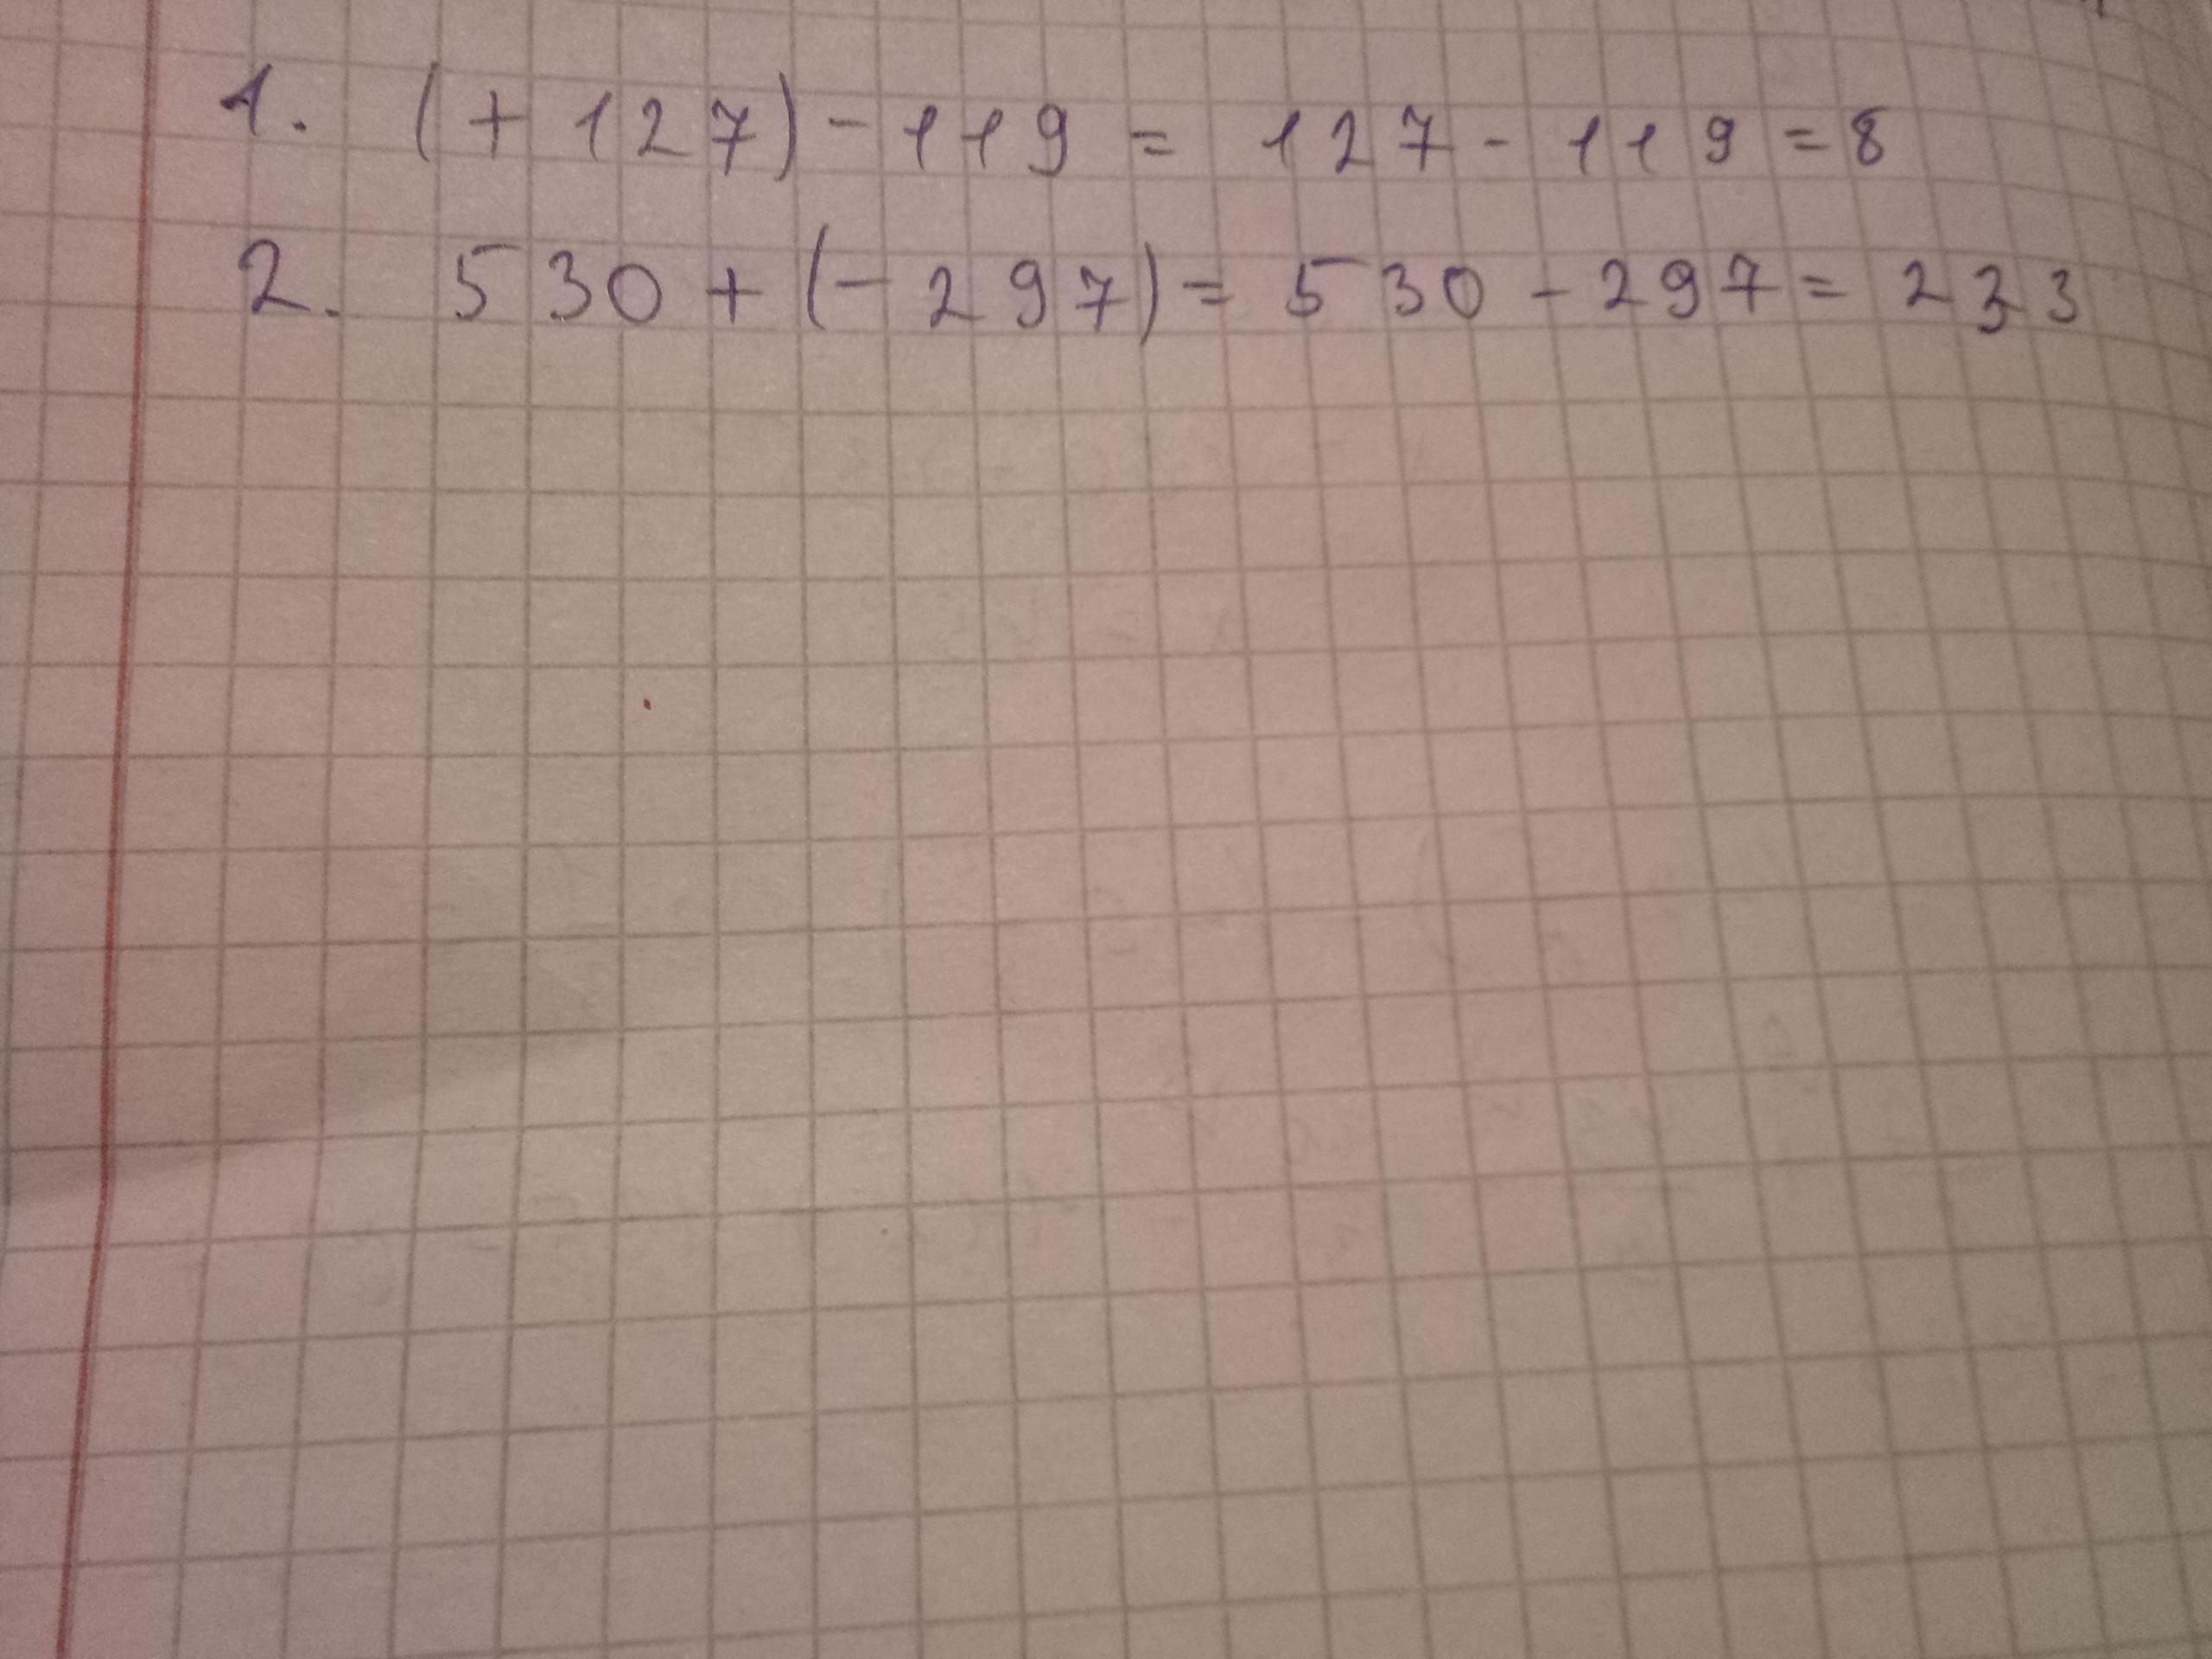 1. (+127)-119 = 127-119=8
2. 530+(-297)= 530-297= 233